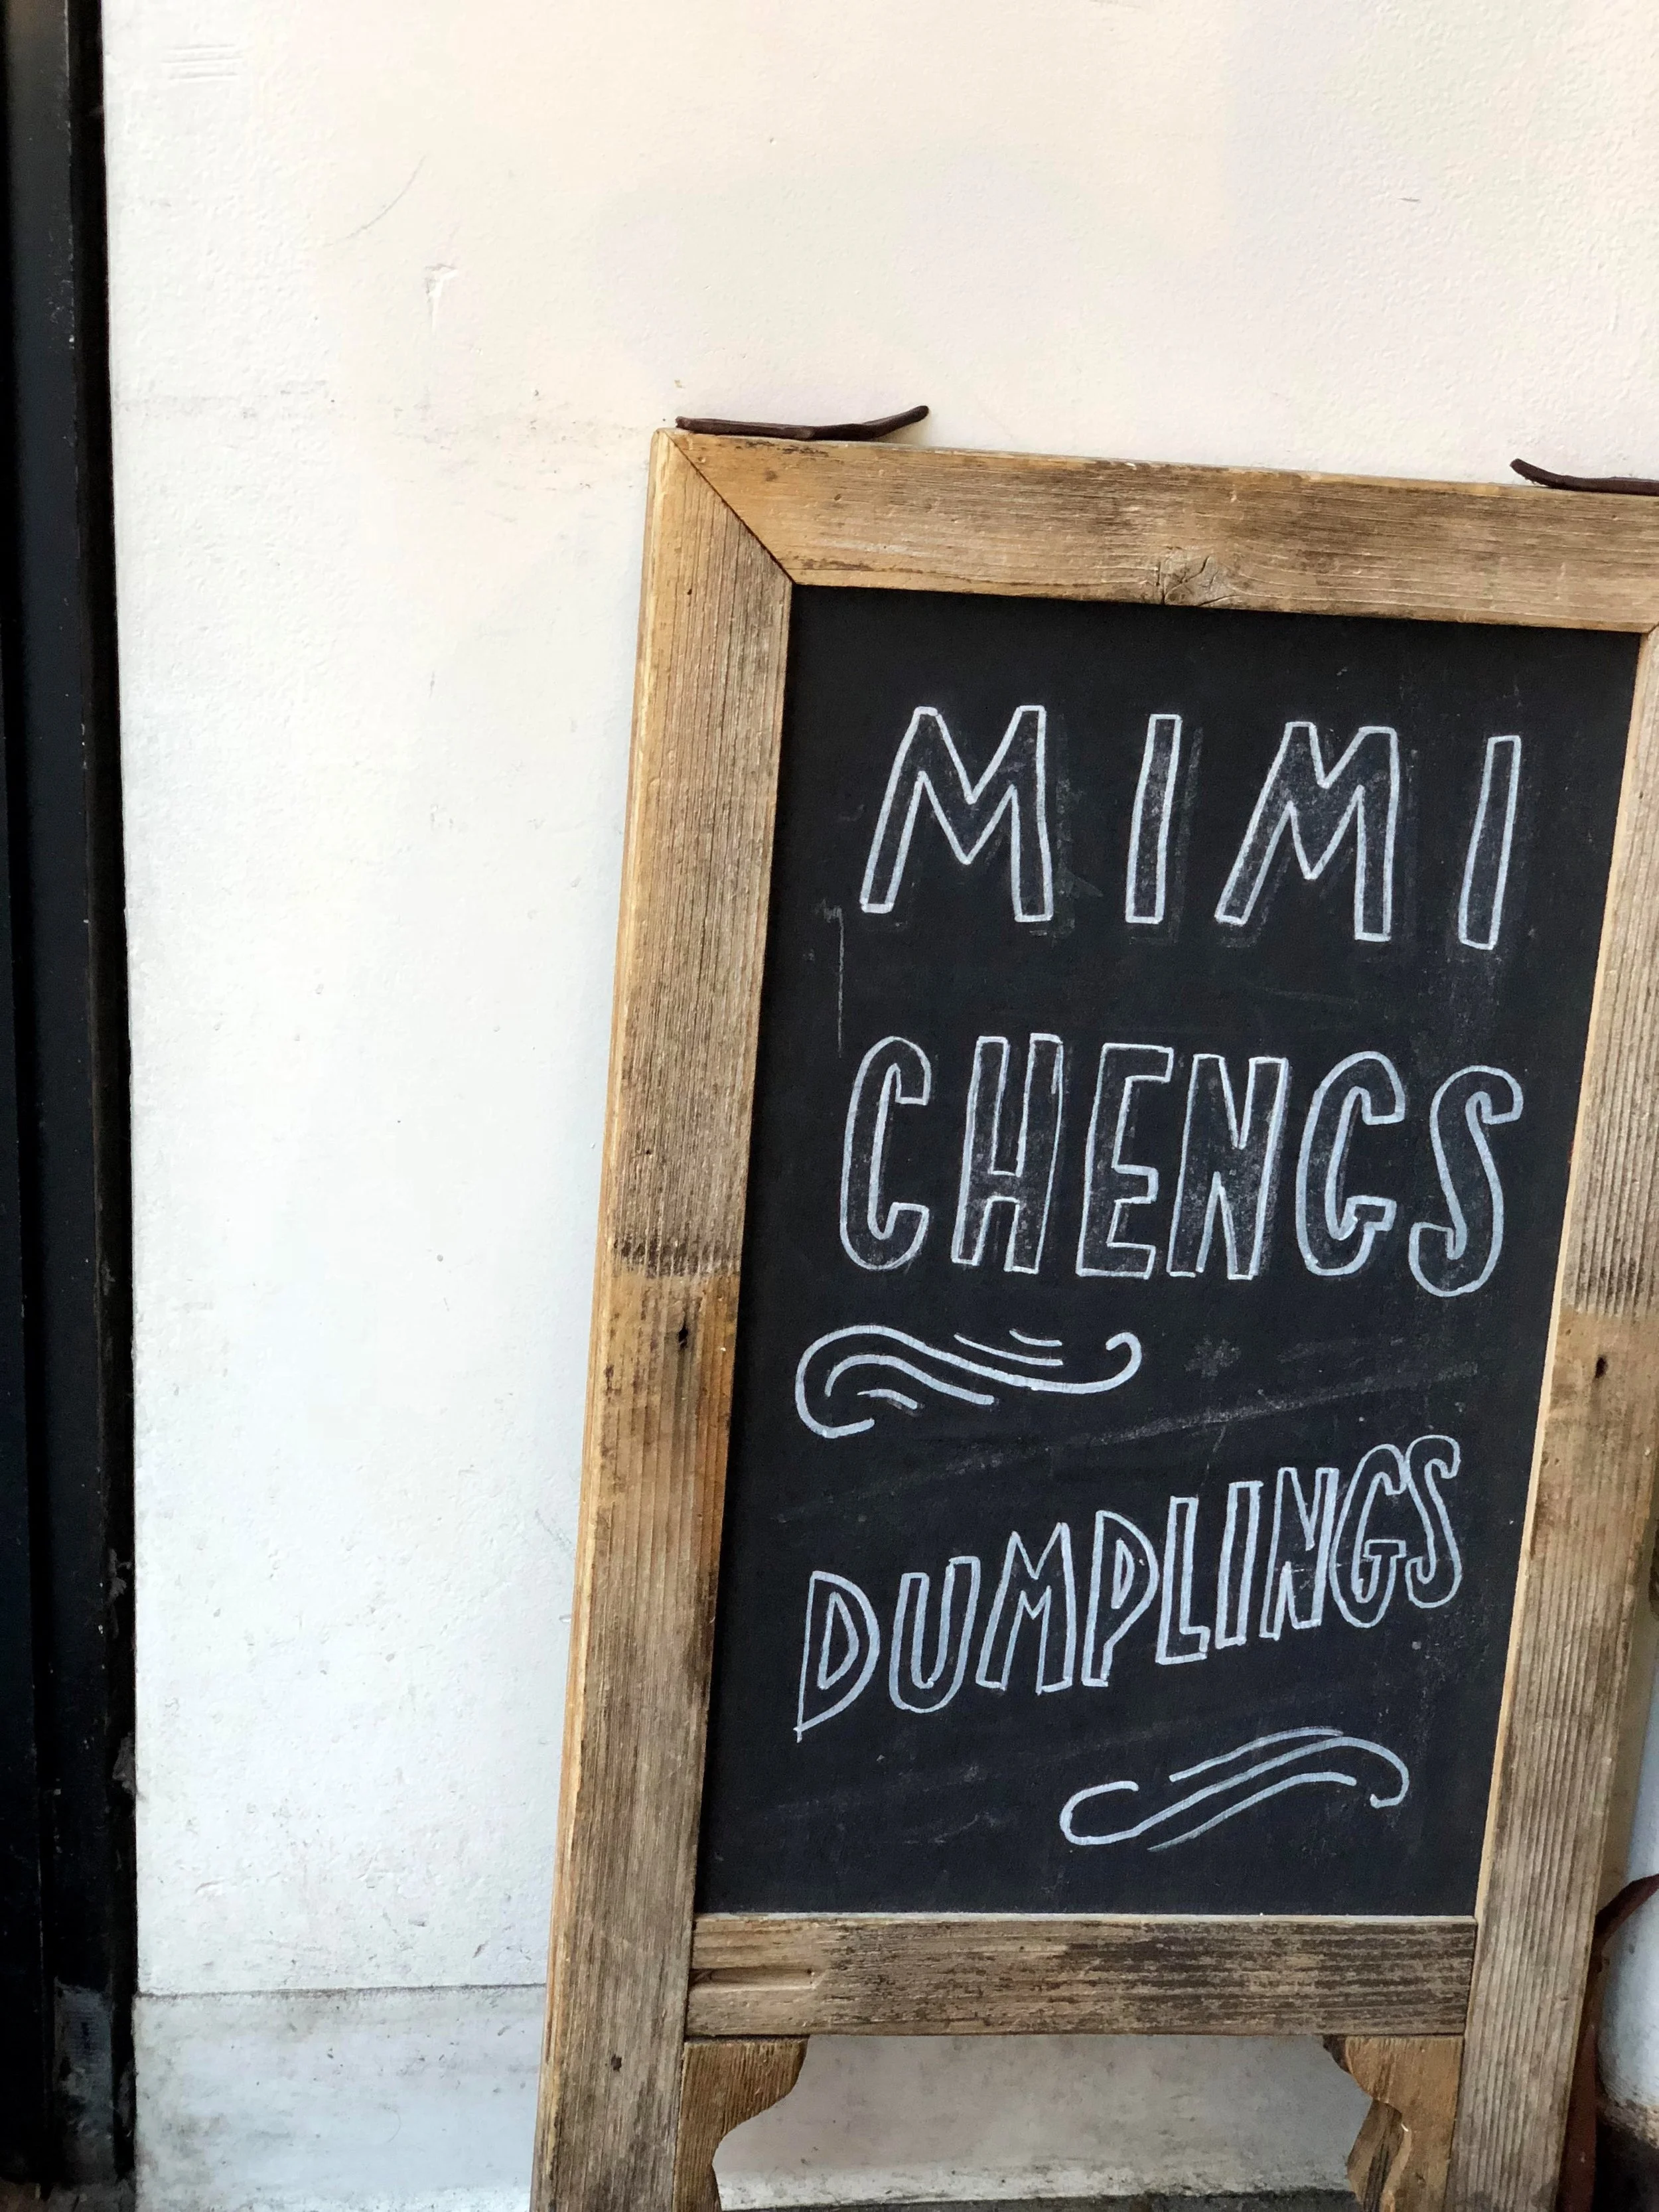 MIMI
CHENGS
DUMPLINGS